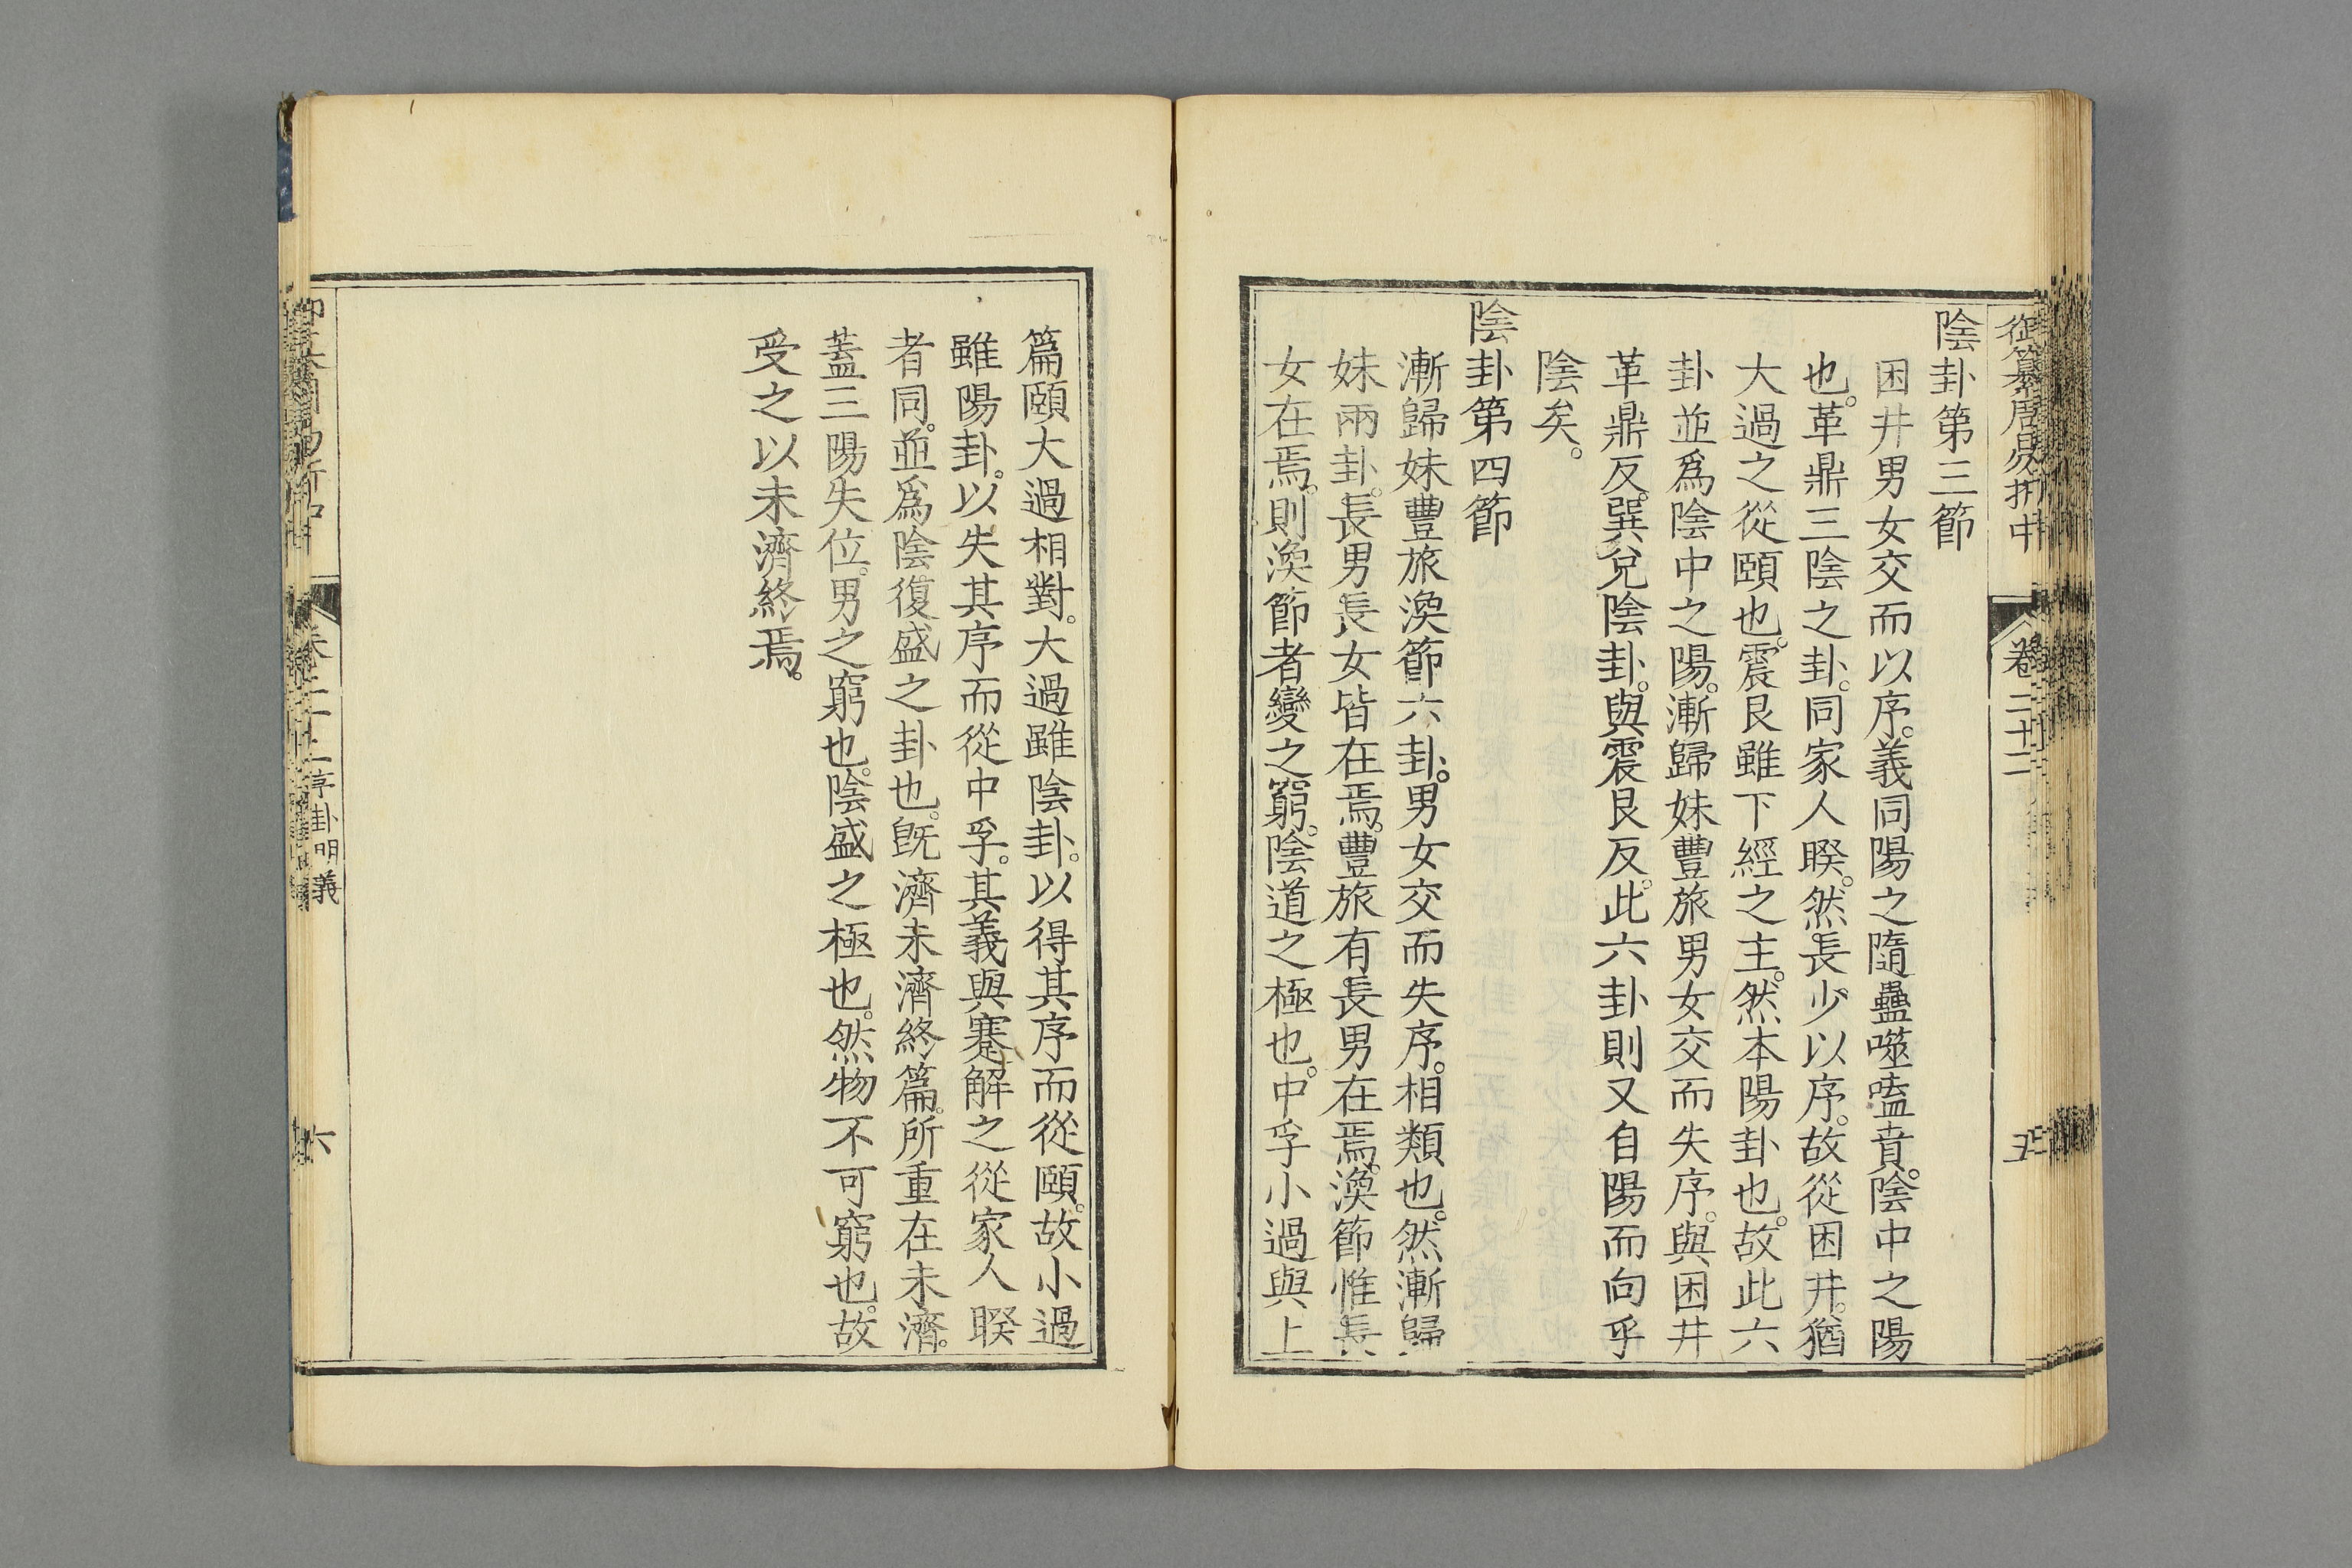 御纂周易折中
卷二十二
五
陰卦第三節
困井男女交而以序。義同陽之隨蠱噬嗑賁。陰中之陽
也。革鼎三陰之卦。同家人睽。然長少以序。故從困井。猶
大過之從頤也。震艮雖下經之主。然本陽卦也。故此六
卦並爲陰中之陽。漸歸妹豐旅男女交而失序。與困井
革鼎反。巽兌陰卦。與震艮反。此六卦則又自陽而向乎
陰矣。
陰卦第四節
漸歸妹豐旅渙節六卦。男女交而失序。相類也。然漸歸
妹兩卦。長男長女皆在焉。豐旅有長男在焉。渙節惟長
女在焉。則渙節者變之窮。陰道之極也。中孚小過與上
篇頤大過相對。大過雖陰卦。以得其序而從頤。故小過
雖陽卦。以失其序而從中孚。其義與蹇解之從家人睽
者同。並爲陰復盛之卦也。旣濟未濟終篇。所重在未濟。
蓋三陽失位。男之窮也。陰盛之極也。然物不可窮也。故
受之以未濟終焉。
卷二十二
序卦明義
六